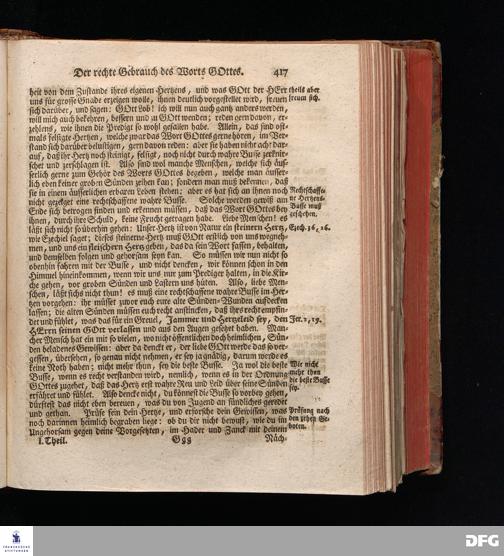 Der rechte Gebrauch des Worts GOttes. 417
heit von dem Zustande ihres eigenen Hertzens, und was GOtt der HErr
uns für grosse Gnade erzeigen wolle, ihnen deutlich vorgestellet wird, freuen
sich darüber, und sagen: GOtt Lob! ich will nun auch gantz anders werden,
will mich auch bekehren, bessern und zu GOtt wenden; reden gern davon, er-
zehlens, wie ihnen die Predigt so wohl gefallen habe. Allein, das sind oft-
mals felsigte Hertzen, welche zwar das Wort GOttes gerne hören, im Ver-
stand sich darüber belustigen, gern davon reden: aber sie haben nicht acht dar-
auf, daß ihr Hertz noch steinigt, felsigt, noch nicht durch wahre Busse zerknir-
schet und zerschlagen ist. Also sind viel manche Menschen, welche sich äus-
serlich gerne zum Gehör des Worts GOttes begeben, welche man äusser-
lich eben keiner groben Sünden zeihen kan; sondern man muß bekennen, daß
sie in einem äusserlichen erbaren Leben stehen: aber es hat sich an ihnen noch
nicht gezeiget eine rechtschaffene wahre Busse. Solche werden gewiß am
Ende sich betrogen finden und erkennen müssen, daß das Wort GOttes bey
ihnen, durch ihre Schuld, keine Frucht getragen habe. Liebe Menschen! es
läßt sich nicht so überhin gehen: Unser Hertz ist von Natur ein steinern Hertz,
wie Ezechiel saget; dieses steinerne Hertz muß GOtt erstlich von uns wegneh-
men, und uns ein fleischern Hertz geben, das da sein Wort fassen, behalten,
und demselben folgen und gehorsam seyn kan. So müssen wir nun nicht so
obenhin fahren mit der Busse, und nicht dencken, wir können schon in den
Himmel hineinkommen, wenn wir uns nur zum Prediger halten, in die Kir-
che gehen, vor groben Sünden und Lastern uns hüten. Also, liebe Men-
schen, läßt sichs nicht thun! es muß eine rechtschaffene wahre Busse im Her-
tzen vorgehen: ihr müsset zuvor euch eure alte Sünden-Wunden aufdecken
lassen; die alten Sünden müssen euch recht anstincken, daß ihrs recht empfin-
det und fühlet, was das für ein Greuel, Jammer und Hertzeleid sey, den
HErrn seinen GOtt verlassen und aus den Augen gesetzet haben. Man-
cher Mensch hat ein mit so vielen, wo nicht öffentlichen doch heimlichen, Sün-
den beladenes Gewissen: aber da dencket er, der liebe GOtt werde das so ver-
gessen, übersehen, so genau nicht nehmen, er sey ja gnädig, darum werde es
keine Noth haben; nicht mehr thun, sey die beste Busse. Ja wol die beste
Busse, wenn es recht verstanden wird, nemlich, wenn es in der Ordnung
GOttes zugehet, daß das Hertz erst wahre Reu und Leid über seine Sünden
erfähret und fühlet. Also dencke nicht, du könnest die Busse so vorbey gehen,
dürftest das nicht eben bereuen, was du von Jugend an sündliches geredet
und gethan. Prüfe sein dein Hertze, und erforsche dein Gewissen, was
noch darinnen heimlich begraben liege: ob du dir nicht bewust, wie du im
Ungehorsam gegen deine Vorgesetzten, im Hader und Zanck mit deinem
I. Theil. Ggg Näch-
theils aber
freuen sich.
Rechtschaffe-
ne Hertzens-
Busse muß
geschehen.
Ezech. 36, 26.
Jer. 2, 19.
Wie nicht
mehr thun
die beste Busse
sey.
Prüfung nach
den zehen Ge-
boten.
FRANCKESCHE
STIFTUNGEN
DFG